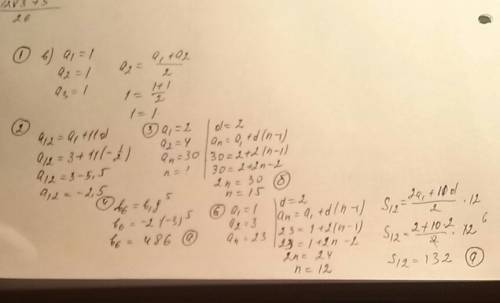 20
① b) a₁ = 1
a₂ = 1
a₃ = 1
a₂ = (a₁ + a₂)/2
1 = (1+1)/2
1 = 1
②
a₁₂ = a₁ + 11d
a₁₂ = 3 + 11(-1/2)
a₁₂ = 3 - 5,5
a₁₂ = -2,5
③ a₁ = 2
a₂ = 4
aₙ = 30
n = ?
d = 2
aₙ = a₁ + d(n-1)
30 = 2 + 2(n-1)
30 = 2 + 2n - 2
2n = 30
n = 15 ⓑ
④
b₆ = b₁q⁵
b₆ = -2(-3)⁵
b₆ = 486 ⓐ
⑥ a₁ = 1
a₂ = 3
aₙ = 23
d = 2
aₙ = a₁ + d(n-1)
23 = 1 + 2(n-1)
23 = 1 + 2n - 2
2n = 24
n = 12
S₁₂ = (2a₁ + 10d)/2 · 12
S₁₂ = (2 + 10·2)/2 · 12 6
S₁₂ = 132